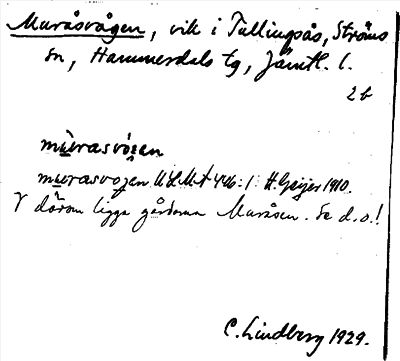 Muråsvågen, vik i Tullingsås, Ströms
sn, Hammerdals tg, Jämtl. l.
2 b
mùrasvǫgen
mùrasvogen ULMA 446:1 H. Geijer 1910.
V därom ligga gårdarna Muråsen. Se d.o.!
C. Lindberg 1929.